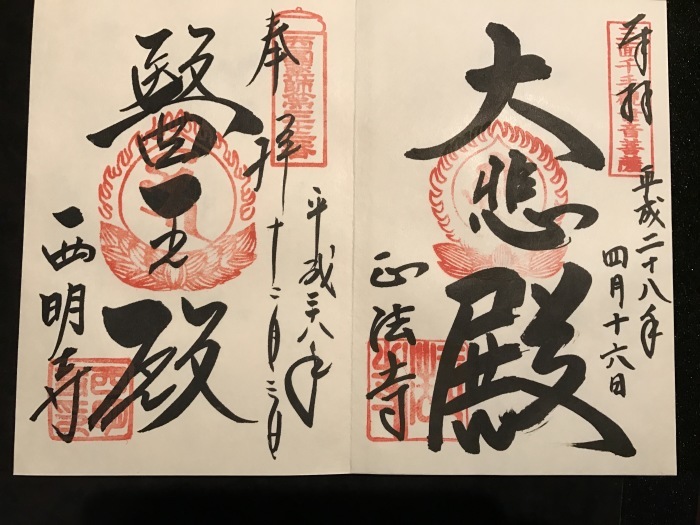 奉拝
平成二十八年
四月十六日
十一面千手観世音菩薩
大悲殿
正法寺
奉拝
十二月三日
平成二八年
醫王殿
西明寺